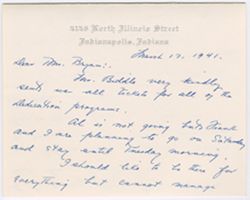 5128 North Illinois Street
Indianapolis, Indiana
March 17, 1941.
Dear Mrs. Bryan:
Mrs. Biddle very kindly
sent us all tickets for all of the
dedication programs.
Al is not going but Frank
and I are planning to go on Saturday
and stay until Tuesday morning.
I should like to be there for
everything but cannot manage